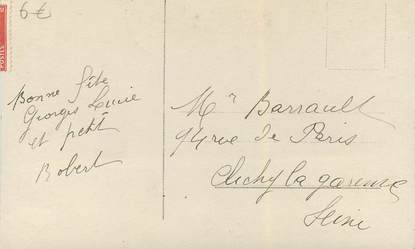 6€
POSTES
Bonne fête
Georges Lucie
et petit
Robert
Mr Barrault
94 rue de Paris
Clichy la garenne
Seine